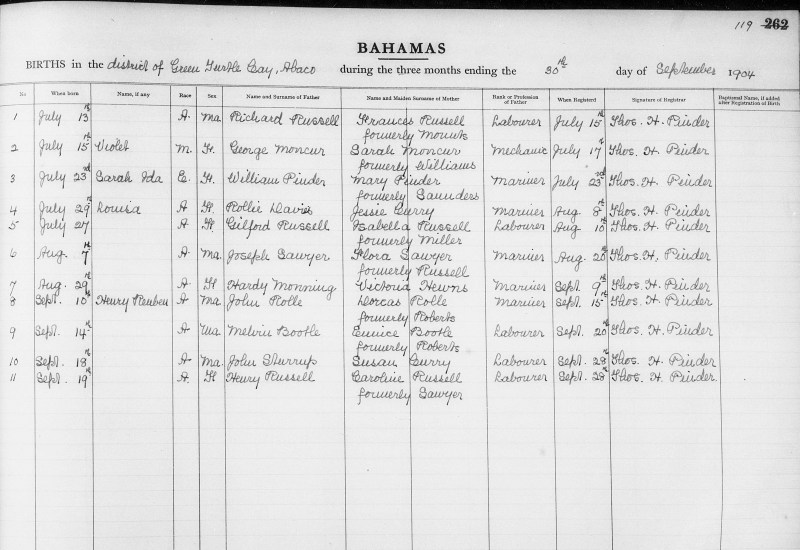 119 262
BAHAMAS
BIRTHS in the district of Green Turtle Cay, Abaco during the three months ending the 30th day of September 1904
No When born Name, if any Race Sex Name and Surname of Father Name and Maiden Surname of Mother Rank or Profession of Father When Registered Signature of Registrar Baptismal Name, if added after Registration of Birth
1 July 13th A. Ma Richard Russell Frances Russell Labourer July 15th Thos. H. Pinder
formerly
2 July 15th Violet M. F. George Moncur Sarah Moncur Mechanic July 17th Thos. H. Pinder
formerly Williams
3 July 23rd Sarah Ida E. F. William Pinder Mary Pinder Mariner July 23rd Thos. H. Pinder
formerly Saunders
4 July 29th Louisa A F. Rollie Davies Jessie Curry Mariner Aug 8th Thos. H. Pinder
5 July 27 A F. Gilford Russell Isabella Russell Labourer Aug 10th Thos. H. Pinder
formerly Miller
6 Aug. 7th A Ma Joseph Sawyer Flora Sawyer Mariner Aug. 20th Thos. H. Pinder
formerly Russell
7 Aug. 29th A F Hardy Monning Victoria Hewns Mariner Sept. 9th Thos. H. Pinder
8 Sept. 10th Henry Reuben A Ma John Rolle Dorcas Rolle Mariner Sept. 15th Thos. H. Pinder
formerly Roberts
9 Sept. 14th A Ma Melvin Bootle Eunice Bootle Labourer Sept. 20th Thos. H. Pinder
formerly Roberts
10 Sept. 18th A Ma. John Sturrup Susan Curry Labourer Sept. 28th Thos. H. Pinder
11 Sept. 19th A. F Henry Russell Caroline Russell Labourer Sept. 28th Thos. H. Pinder
formerly Sawyer